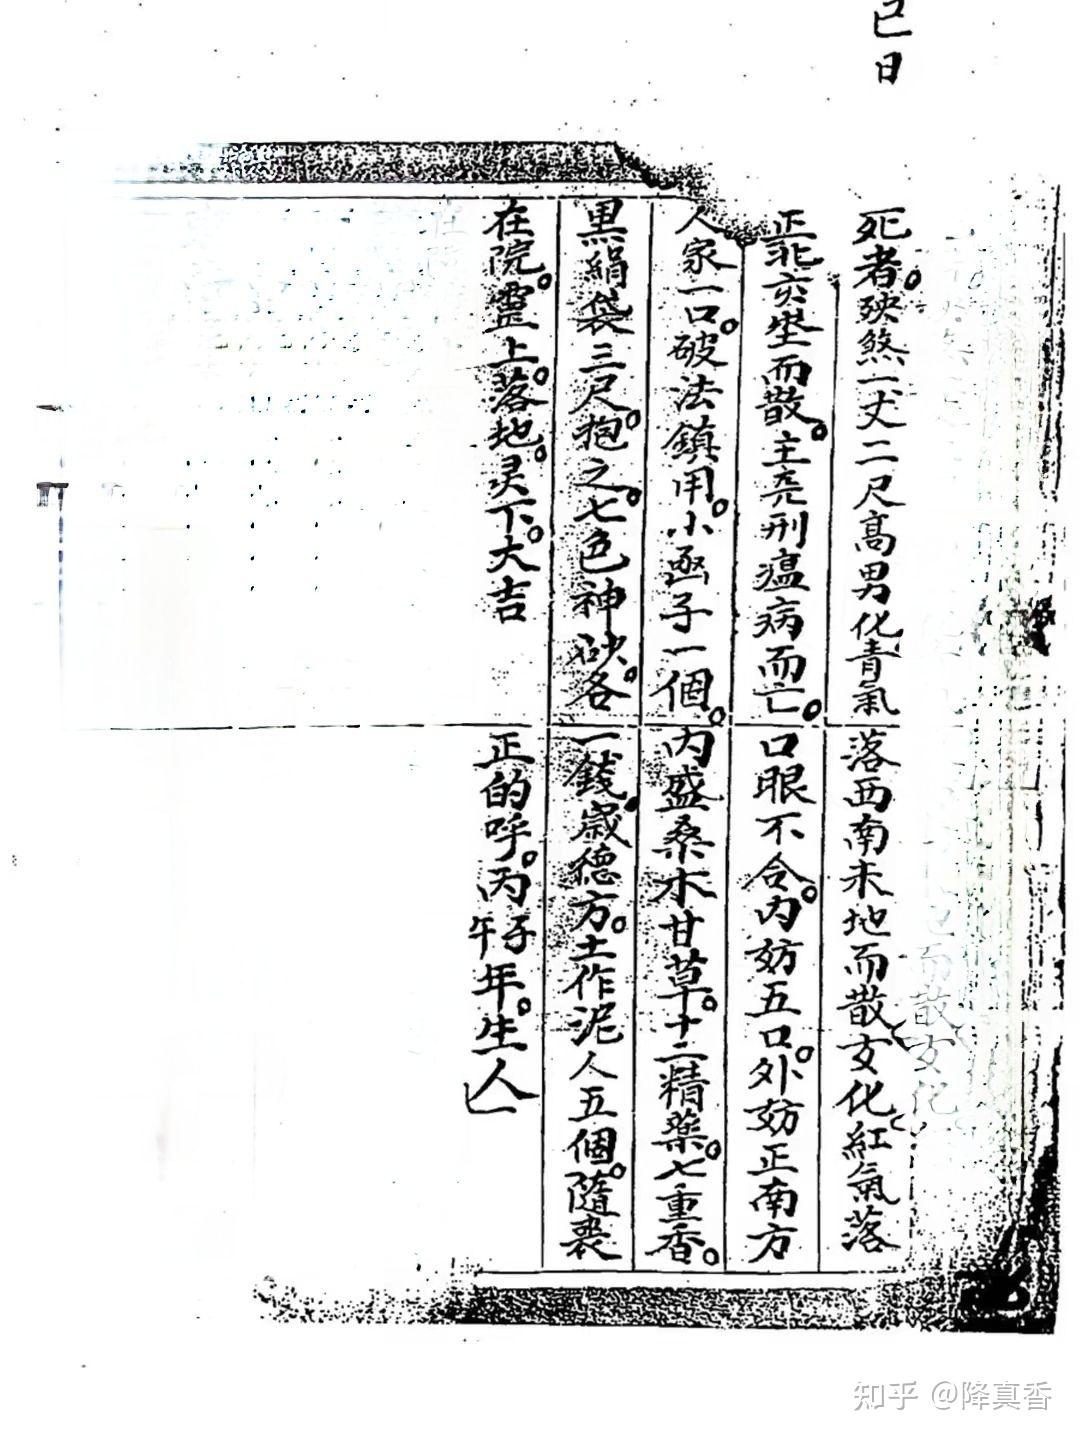 巳日
死者。殃煞一丈二尺高男化青氣落西南未地而散女化紅氣落
正北亥坐而散。主堯刑瘟病而亡。口眼不合。内妨五口。外妨正南方
人家一口。破法鎮用。小函子一個。内盛桑木甘草。十二精藥。七重香。
黒絹袋三尺。抱之。七色神砂。各一錢。歲德方。土作泥人五個。隨喪
在院。靈上。落地。灵下。大吉
正的呼。丙子午年。生人
而散女化
知乎 @降真香